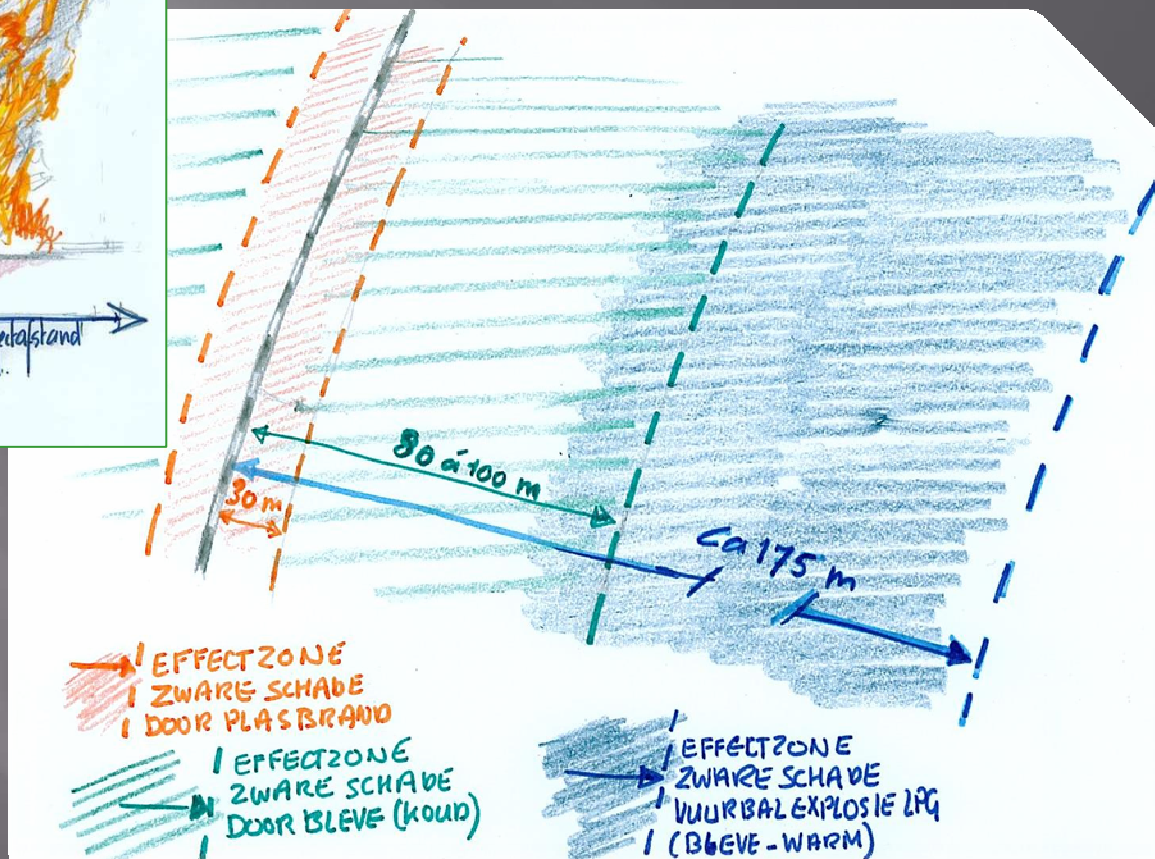 80 á 100 m
30 m
Ca 175 m
EFFECTZONE
ZWARE SCHADE
DOOR PLASBRAND
EFFECTZONE
ZWARE SCHADE
DOOR BLEVE (KOUD)
EFFECTZONE
ZWARE SCHADE
VUURBALEXPLOSIE LPG
(BLEVE-WARM)